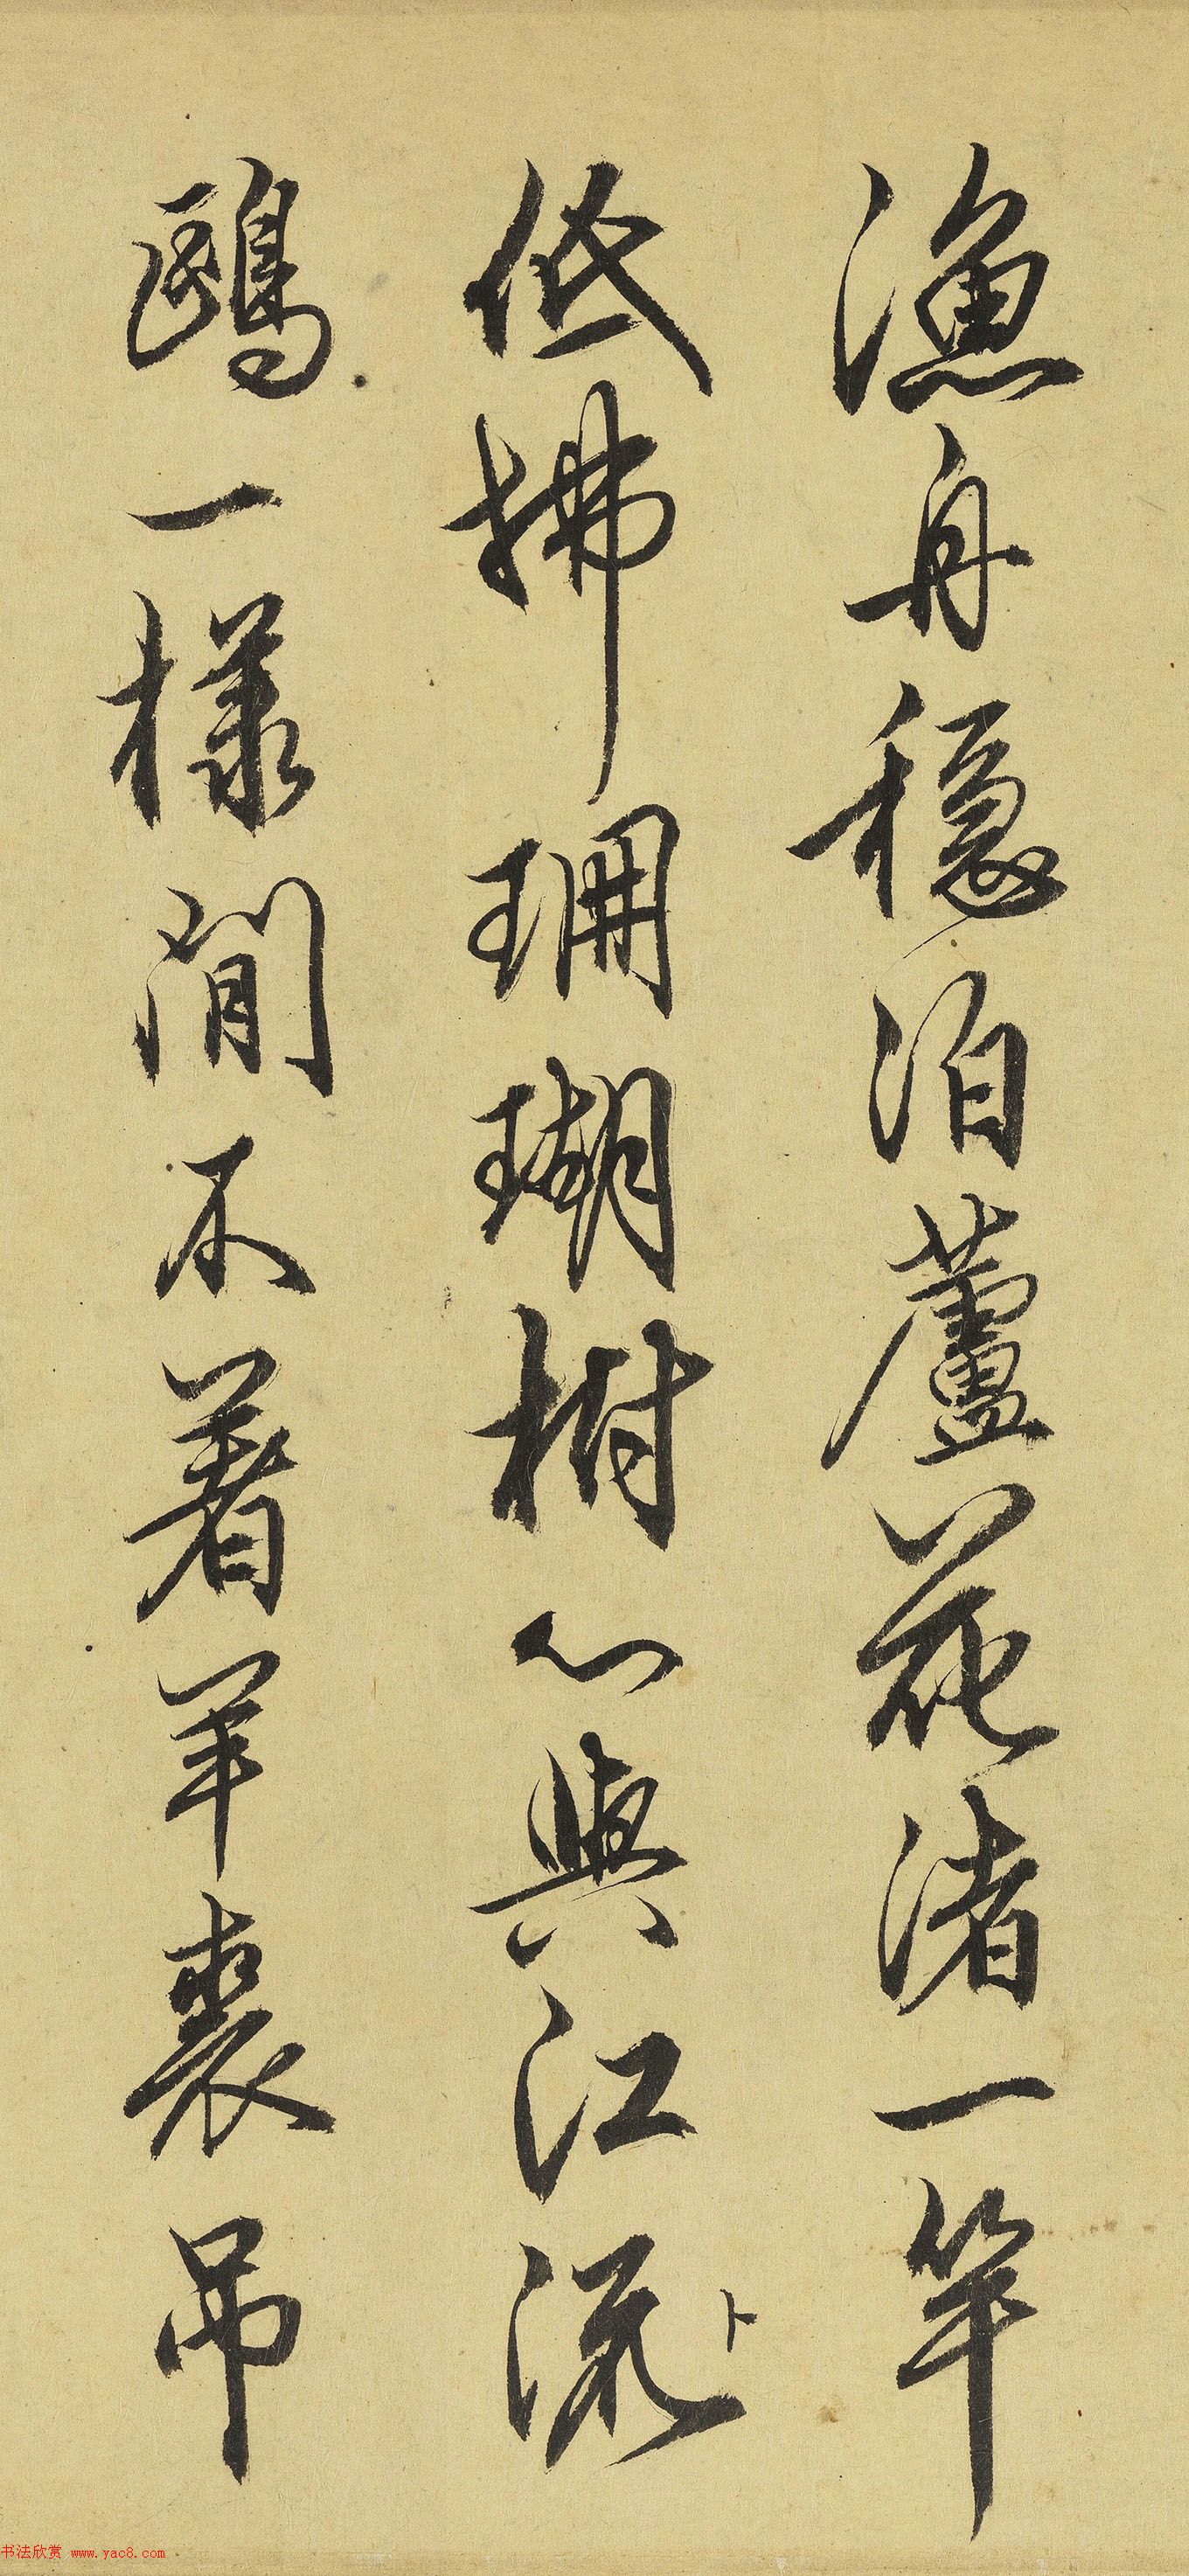 漁舟穩泊蘆花渚一竿
低拂珊瑚樹心與江流卜
鷗一樣閒不著羊裘吊
书法欣赏 www.yac8.com